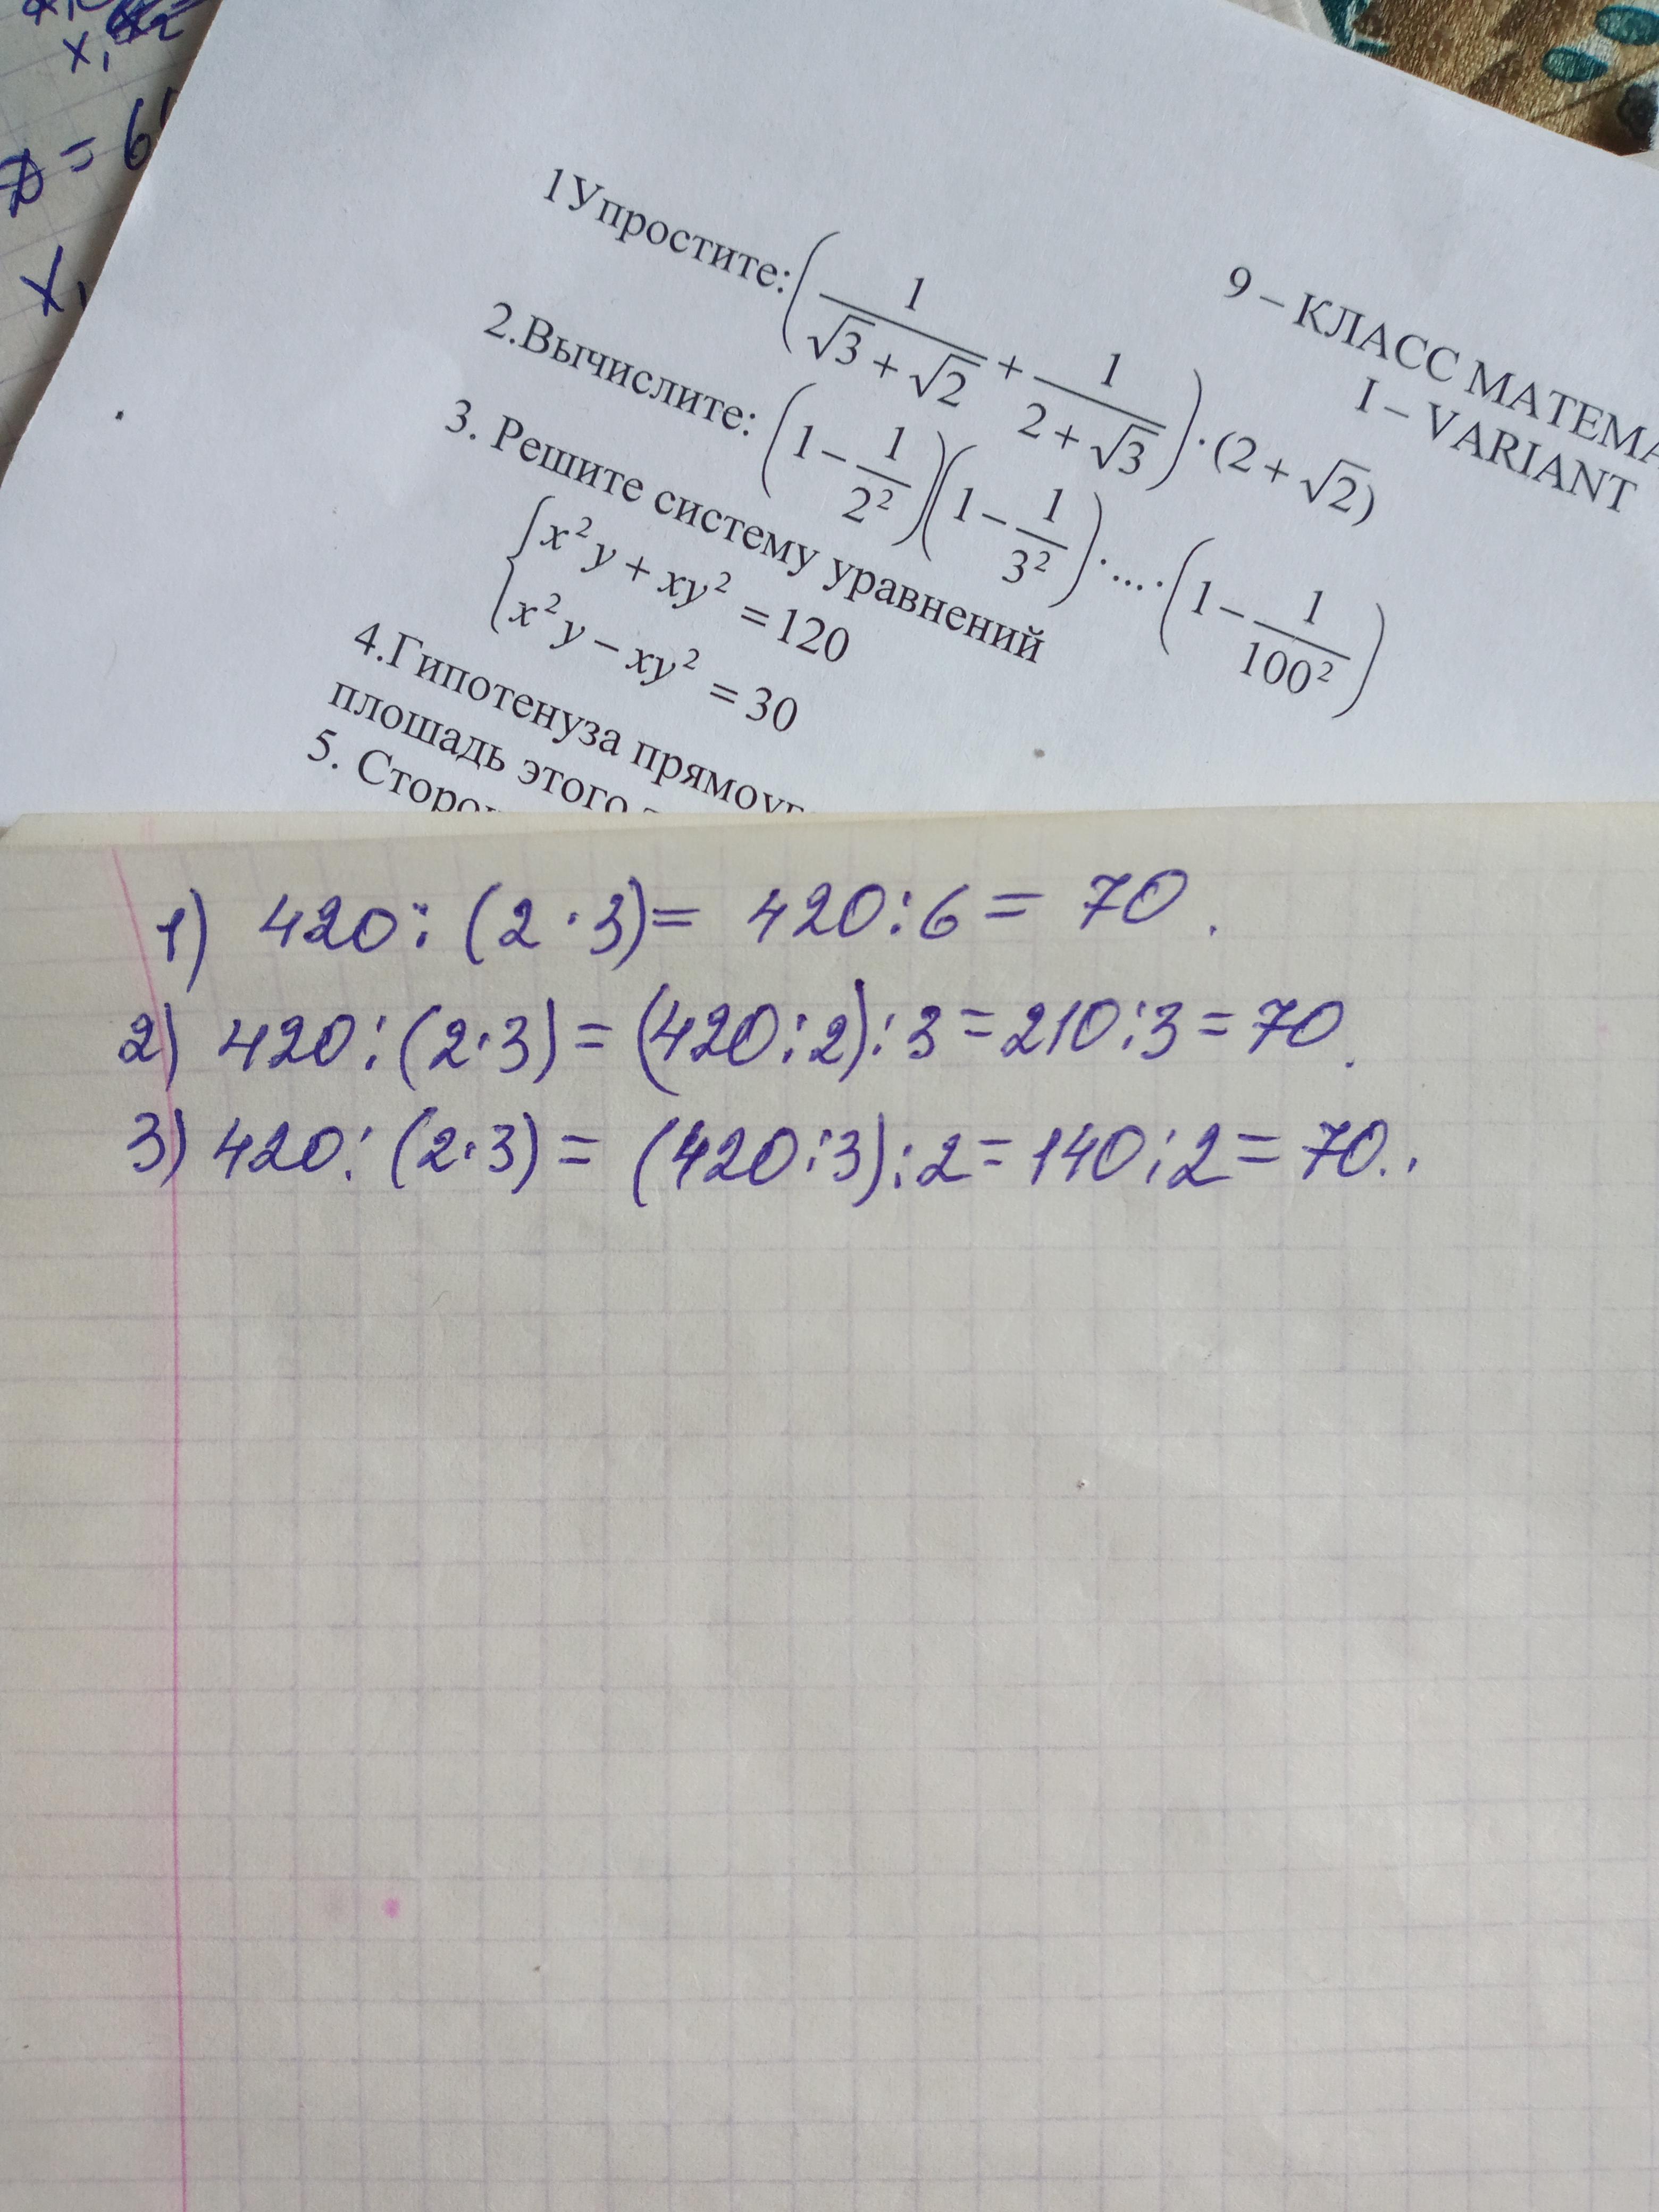 9 – КЛАСС
I – VARIANT
1Упростите: (1/(√3 + √2) + 1/(2 + √3)) · (2 + √2)
2.Вычислите: (1 – 1/2²)(1 – 1/3²) · ... · (1 – 1/100²)
3. Решите систему уравнений
{x²y + xy² = 120
x²y – xy² = 30
4.Гипотенуза
площадь этого
5.
1) 420 : (2 · 3) = 420 : 6 = 70.
2) 420 : (2 · 3) = (420 : 2) : 3 = 210 : 3 = 70.
3) 420 : (2 · 3) = (420 : 3) : 2 = 140 : 2 = 70..